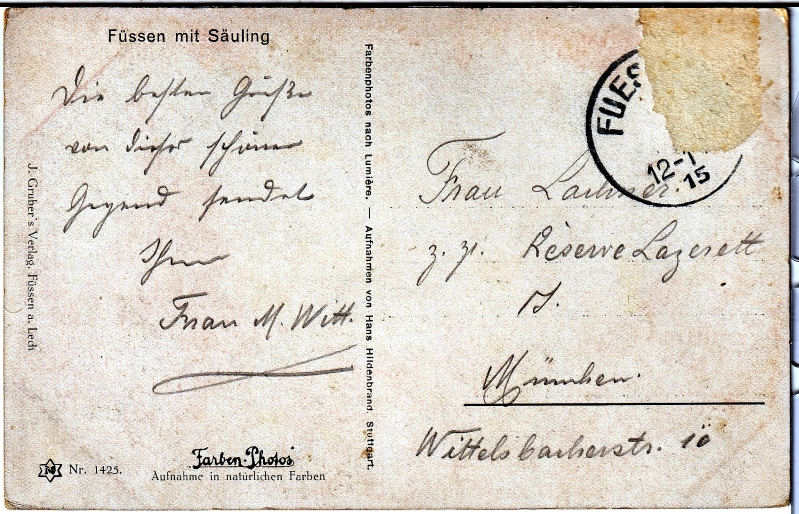 Füssen mit Säuling
Die besten Grüße
von dieser schönen
Gegend sendet
Ihnen
Frau M. Witt.
J. Gruber's Verlag, Füssen a. Lech
Nr. 1425.
Farben-Photos
Aufnahme in natürlichen Farben
Farbenphotos nach Lumière. — Aufnahmen von Hans Hildenbrand, Stuttgart.
FUES
12-1
15
Frau
z. Zt. Reserve Lazerett
München.
Wittelsbacherstr. 10